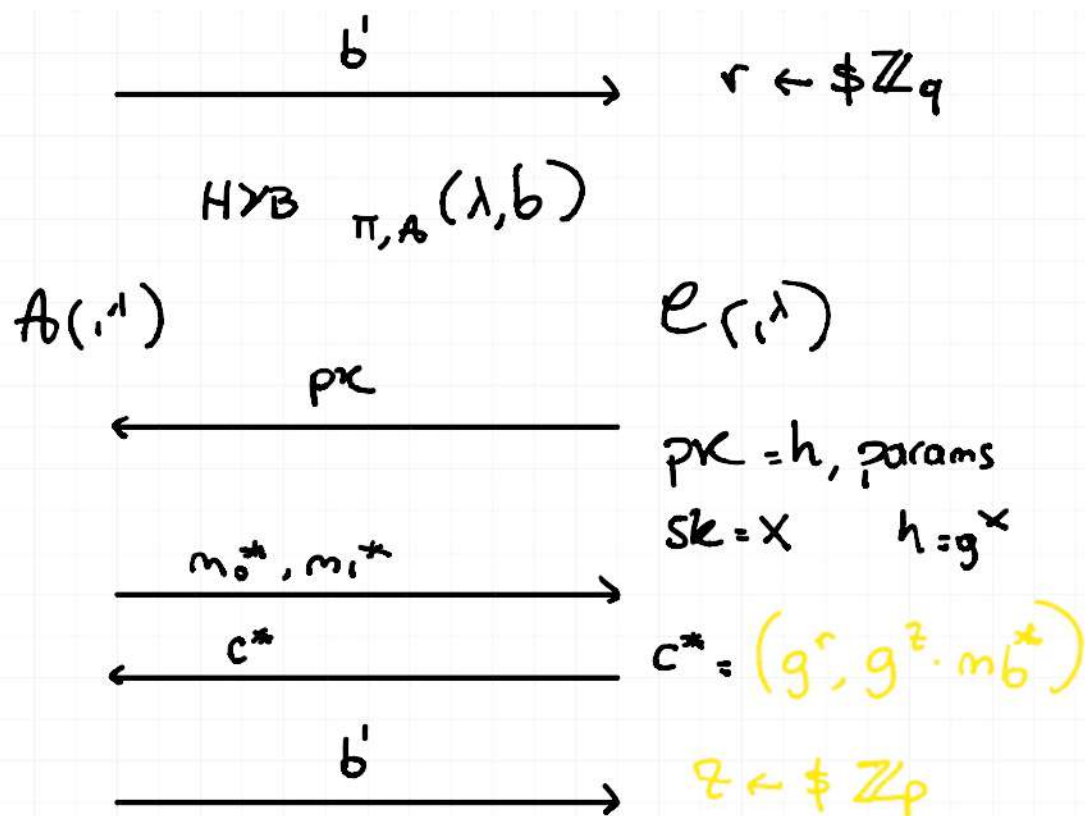 b'
r ← $ ℤq
HYB π,A (λ,b)
A(1^λ)
C(1^λ)
pk
pk = h, params
sk = x h = g^x
m0*, m1*
c*
c* = (g^r, g^z · mb*)
b'
z ← $ ℤp